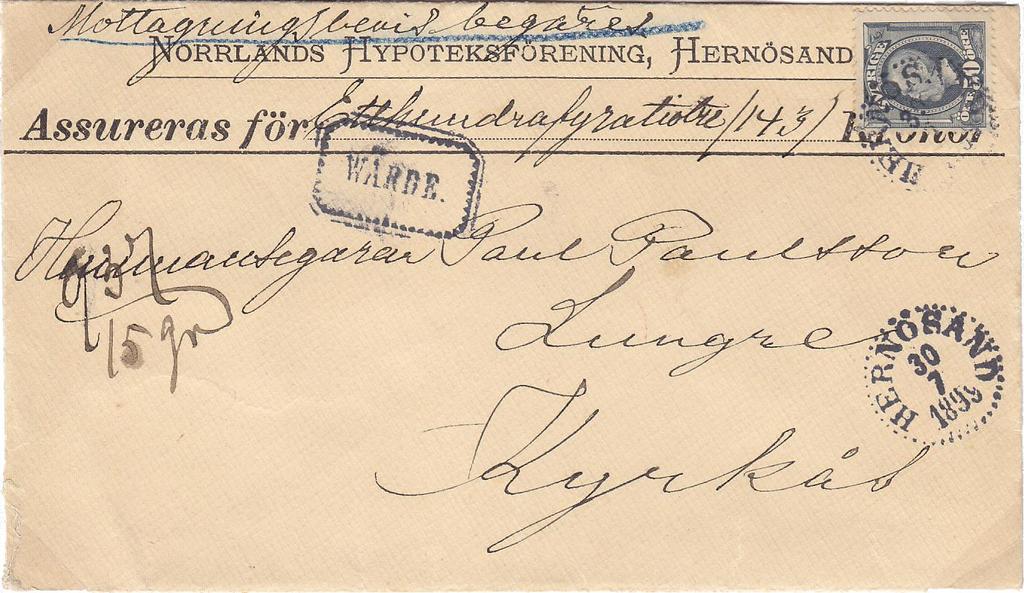 Mottagningsbevis begäres
NORRLANDS HYPOTEKSFÖRENING, HERNÖSAND
Assureras för Etthundrafyratiotre /143/ Kronor
SVERIGE
50
ÖRE
WÄRDE.
Hemmansegaren Paul Paulsson
Lungre
Kyrkås
15 gr
HERNÖSAND
30
7
1899